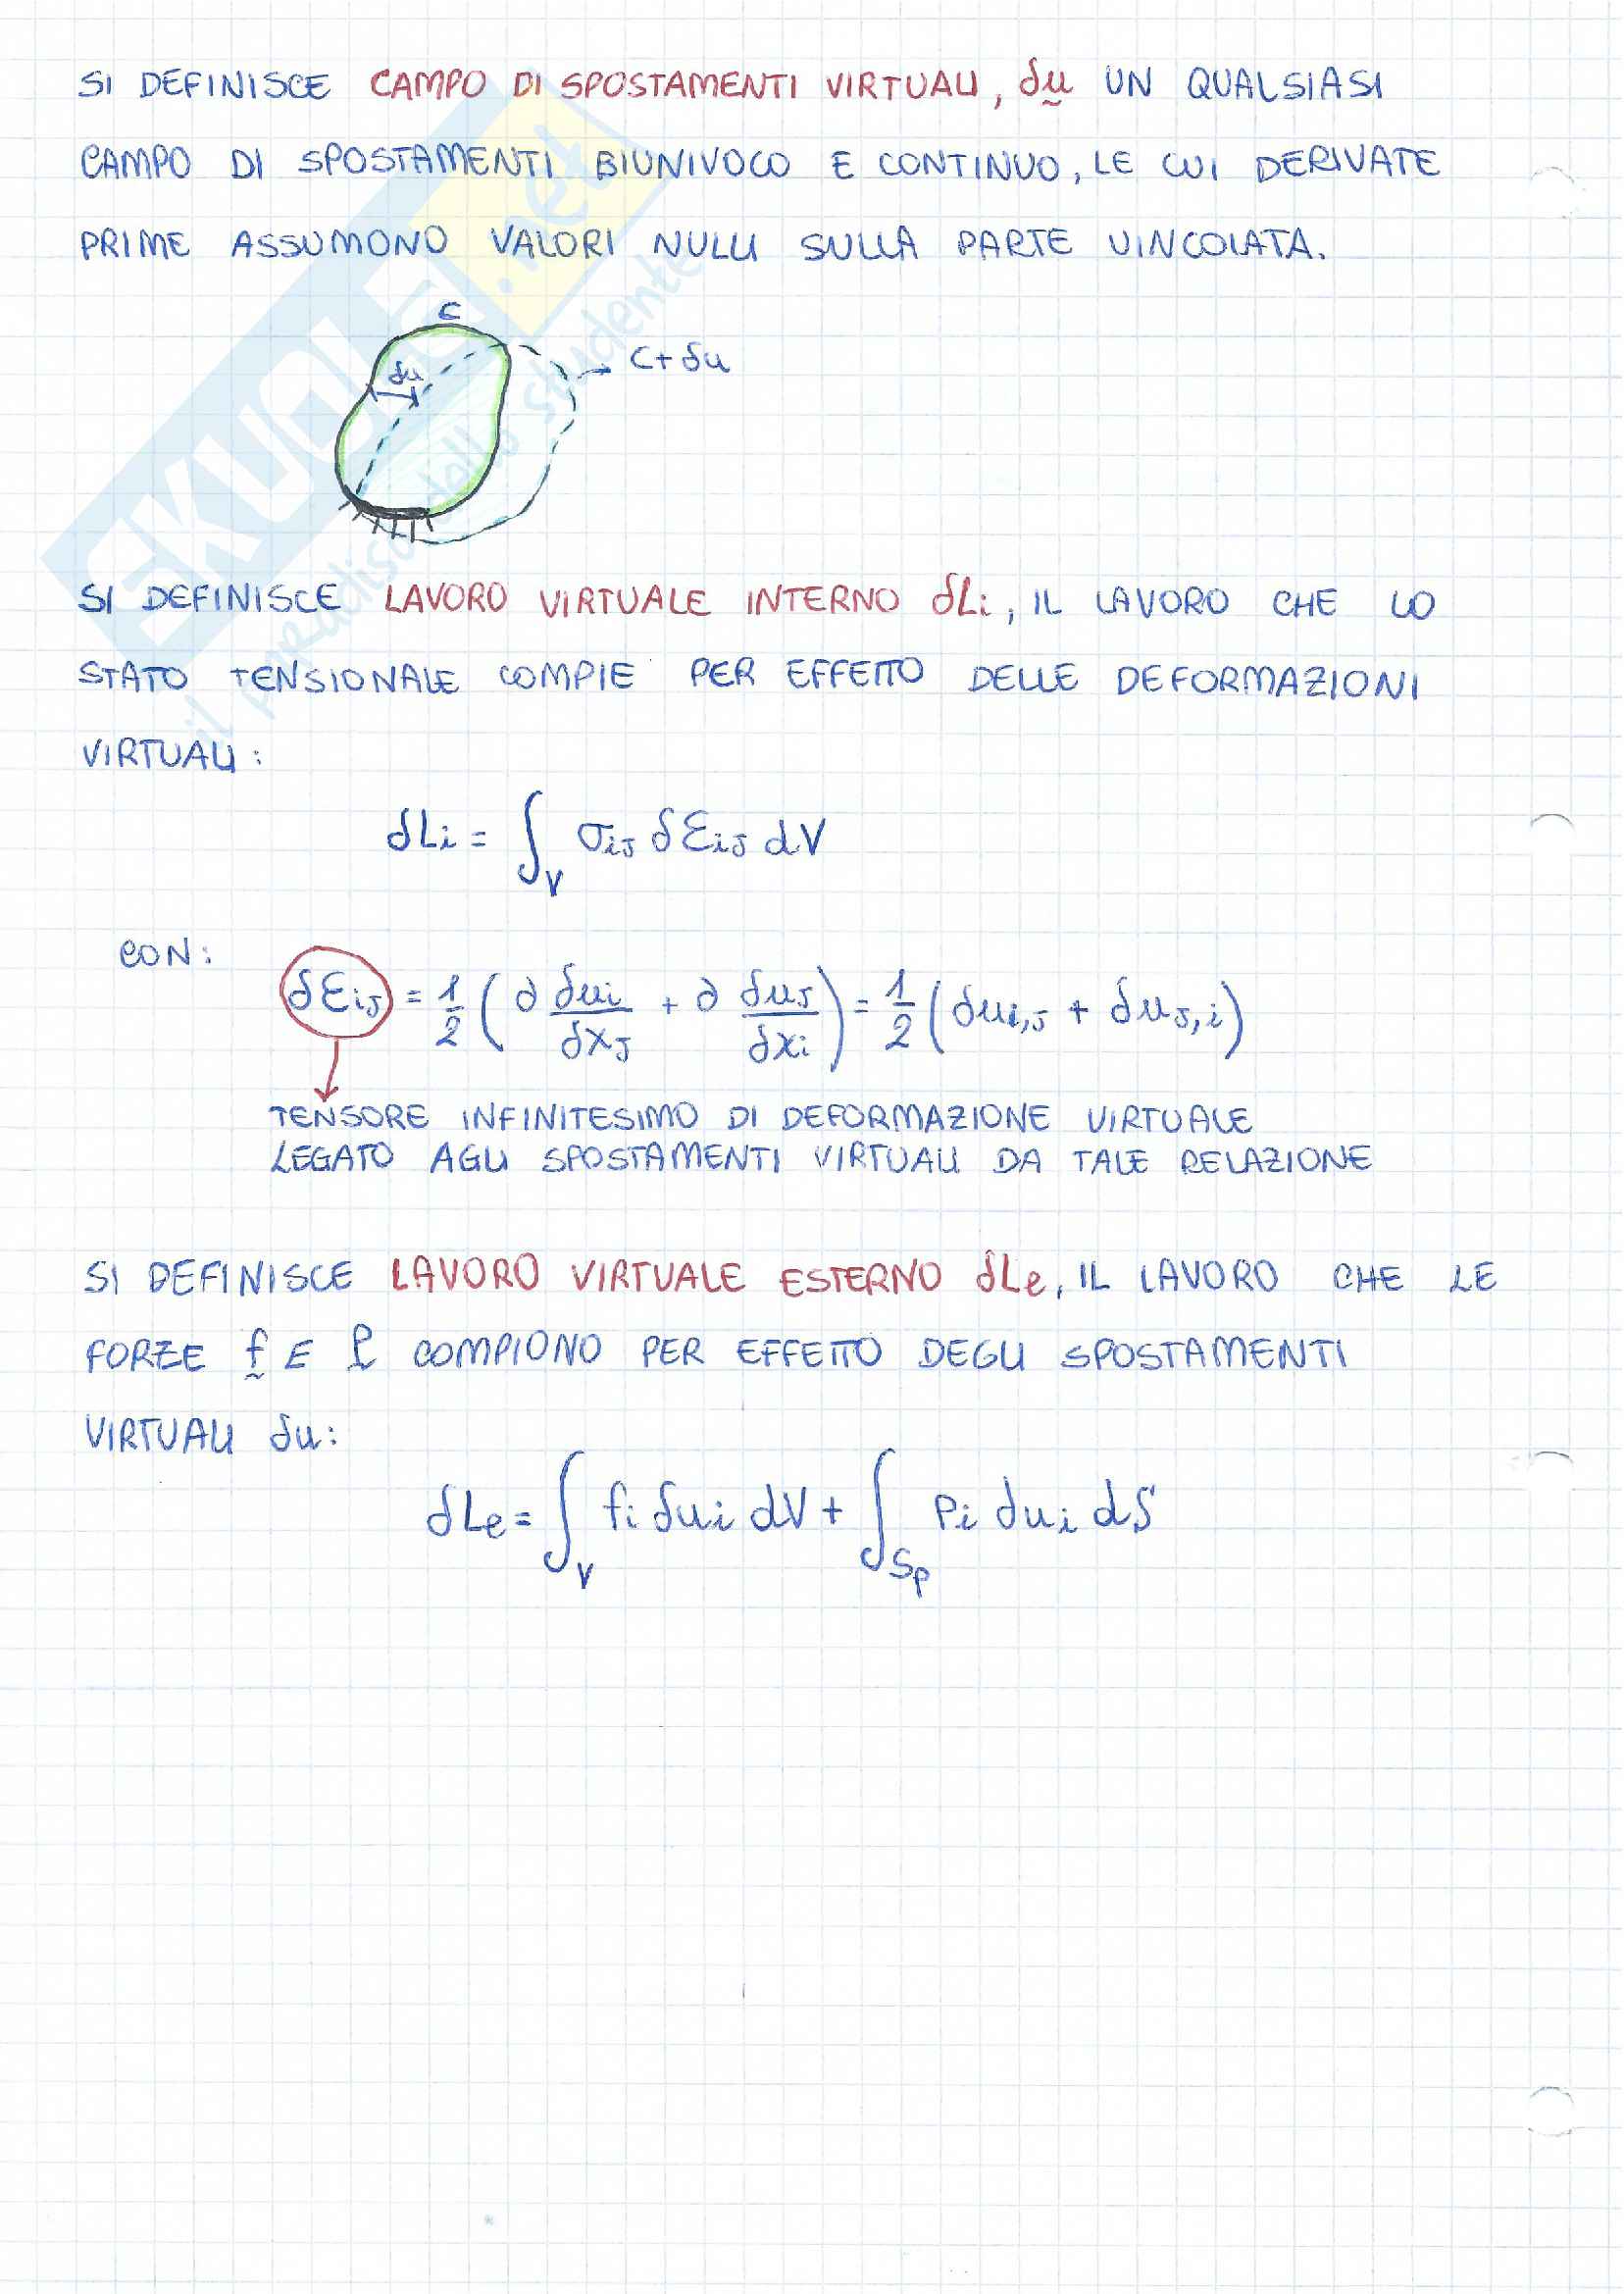 SI DEFINISCE CAMPO DI SPOSTAMENTI VIRTUALI, δu UN QUALSIASI
CAMPO DI SPOSTAMENTI BIUNIVOCO E CONTINUO, LE CUI DERIVATE
PRIME ASSUMONO VALORI NULLI SULLA PARTE VINCOLATA.
C
δu
C+δu
SI DEFINISCE LAVORO VIRTUALE INTERNO δLi, IL LAVORO CHE LO
STATO TENSIONALE COMPIE PER EFFETTO DELLE DEFORMAZIONI
VIRTUALI:
δLi = ∫_V σij δεij dV
CON:
δεij = 1/2 (∂ δui/δxj + ∂ δuj/δxi) = 1/2 (δui,j + δuj,i)
TENSORE INFINITESIMO DI DEFORMAZIONE VIRTUALE
LEGATO AGLI SPOSTAMENTI VIRTUALI DA TALE RELAZIONE
SI DEFINISCE LAVORO VIRTUALE ESTERNO δLe, IL LAVORO CHE LE
FORZE f E P COMPIONO PER EFFETTO DEGLI SPOSTAMENTI
VIRTUALI δu:
δLe = ∫_V fi δui dV + ∫_Sp Pi δui dS
SKUOLA.net
il paradiso dello studente